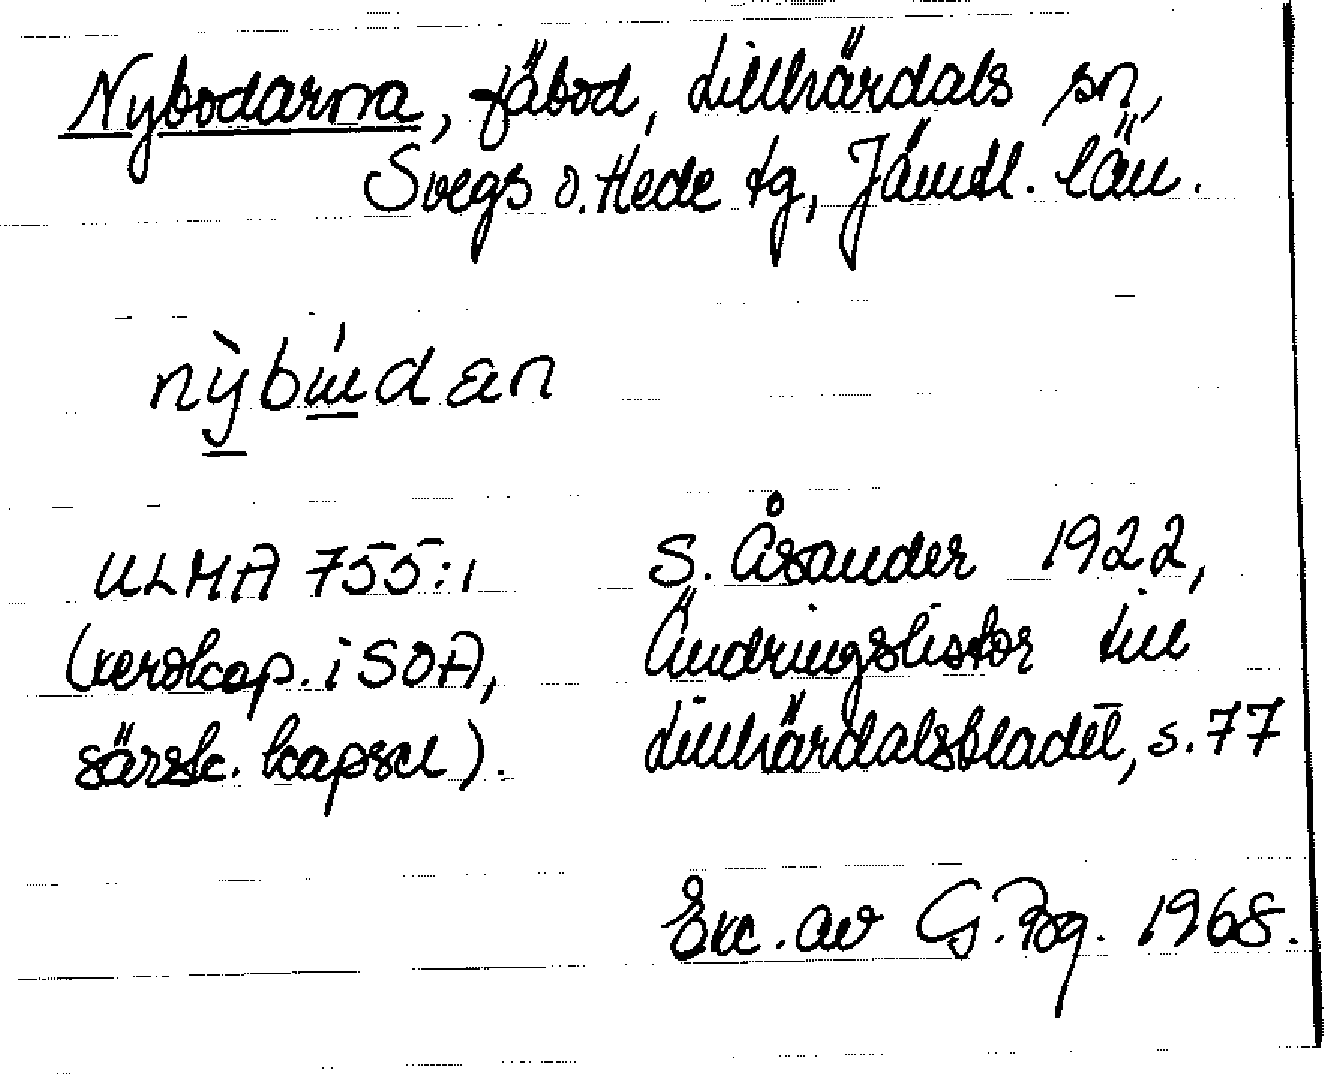 Nybodarna, fäbod, Lillhärdals sn,
Svegs o. Hede tg, Jämtl. län.
nỳbɯ́dan
ULMA 755:1
(xeroxkop. i SOA,
särsk. kapsel).
S. Åsander 1922,
Ändringslistor till
Lillhärdalsbladet, s. 77
Exc. av G. Bg. 1968.